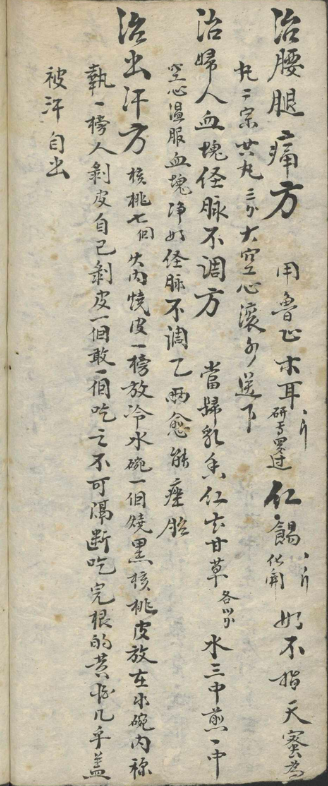 治腰腿痛方 用魯山木耳八斤研專羅过 仁餳八斤化開 如不指天蜜為
丸二宗廿九三分大空心滚水送下
治婦人血塊经脉不調方 當歸乳香仁言甘草各三分 水三中煎一中
空心温服血塊净如经脉不調乙兩愈能痊胎
治出汗方 核桃七個火内燒皮一榜放冷水碗一個燒黑核桃皮放在水碗内裱
執一榜人剥皮自己剥皮一個敢一個吃之不可隔断吃完根的黄水几乎盖
被汗自出